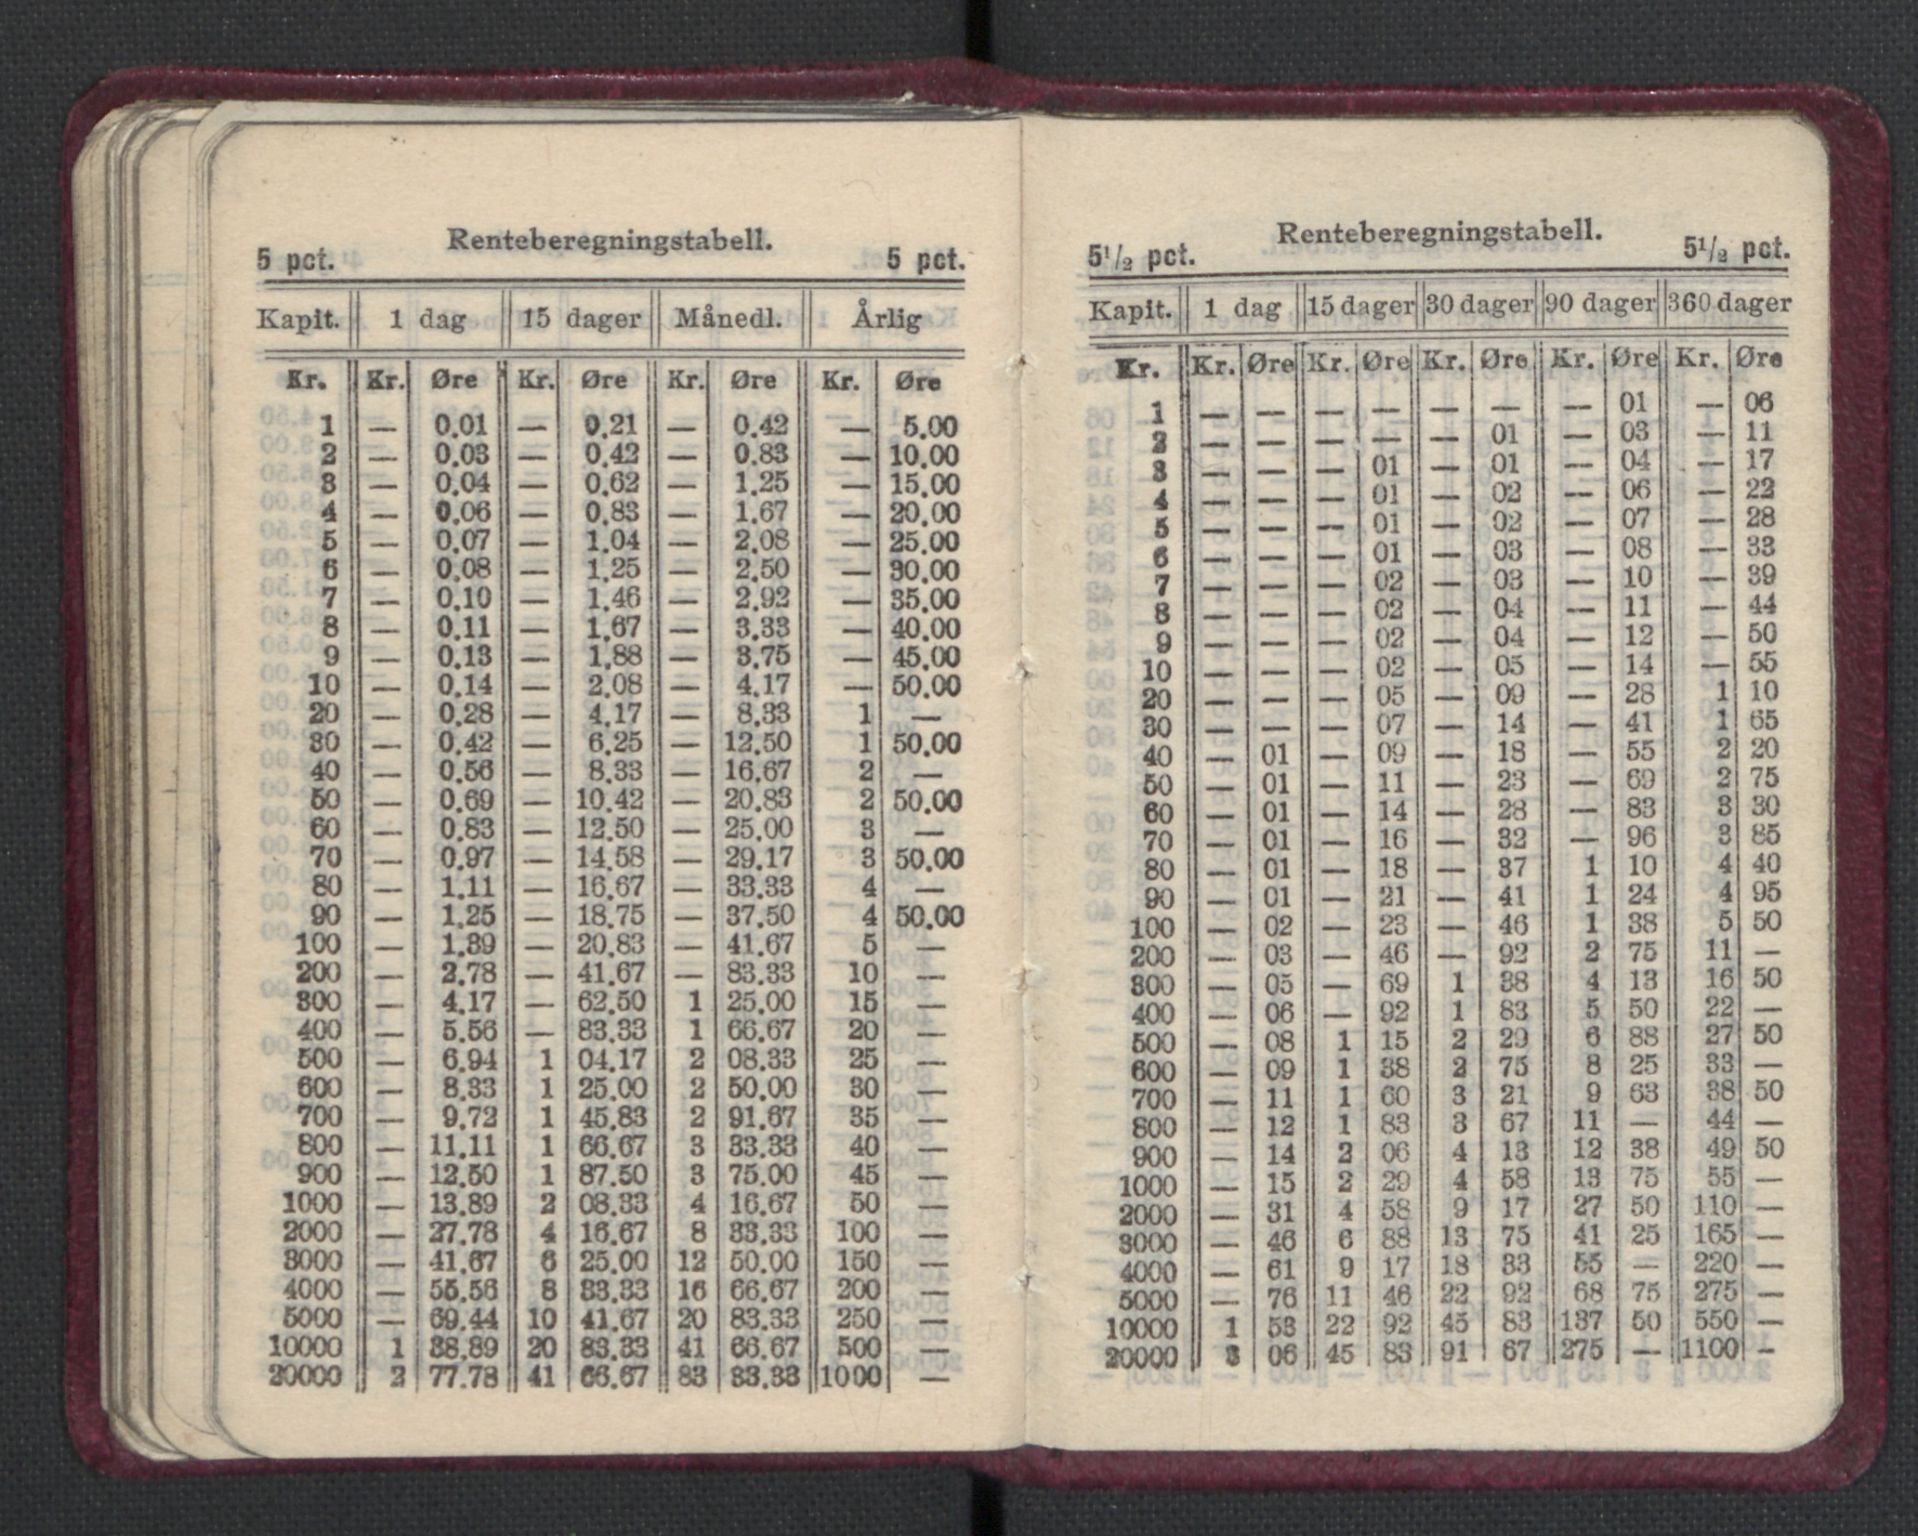 Renteberegningstabell.
5 pct. 5 pct.
Kapit. 1 dag 15 dager Månedl. Årlig
Kr. Kr. Øre Kr. Øre Kr. Øre Kr. Øre
1 — 0.01 — 0.21 — 0.42 — 5.00
2 — 0.03 — 0.42 — 0.83 — 10.00
3 — 0.04 — 0.62 — 1.25 — 15.00
4 — 0.06 — 0.83 — 1.67 — 20.00
5 — 0.07 — 1.04 — 2.08 — 25.00
6 — 0.08 — 1.25 — 2.50 — 30.00
7 — 0.10 — 1.46 — 2.92 — 35.00
8 — 0.11 — 1.67 — 3.33 — 40.00
9 — 0.13 — 1.88 — 3.75 — 45.00
10 — 0.14 — 2.08 — 4.17 — 50.00
20 — 0.28 — 4.17 — 8.33 1 —
30 — 0.42 — 6.25 — 12.50 1 50.00
40 — 0.56 — 8.33 — 16.67 2 —
50 — 0.69 — 10.42 — 20.83 2 50.00
60 — 0.83 — 12.50 — 25.00 3 —
70 — 0.97 — 14.58 — 29.17 3 50.00
80 — 1.11 — 16.67 — 33.33 4 —
90 — 1.25 — 18.75 — 37.50 4 50.00
100 — 1.39 — 20.83 — 41.67 5 —
200 — 2.78 — 41.67 — 83.33 10 —
300 — 4.17 — 62.50 1 25.00 15 —
400 — 5.56 — 83.33 1 66.67 20 —
500 — 6.94 1 04.17 2 08.33 25 —
600 — 8.33 1 25.00 2 50.00 30 —
700 — 9.72 1 45.83 2 91.67 35 —
800 — 11.11 1 66.67 3 33.33 40 —
900 — 12.50 1 87.50 3 75.00 45 —
1000 — 13.89 2 08.33 4 16.67 50 —
2000 — 27.78 4 16.67 8 33.33 100 —
3000 — 41.67 6 25.00 12 50.00 150 —
4000 — 55.56 8 33.33 16 66.67 200 —
5000 — 69.44 10 41.67 20 83.33 250 —
10000 1 38.89 20 83.33 41 66.67 500 —
20000 2 77.78 41 66.67 83 33.33 1000 —
Renteberegningstabell.
5½ pct. 5½ pct.
Kapit. 1 dag 15 dager 30 dager 90 dager 360 dager
Kr. Kr. Øre Kr. Øre Kr. Øre Kr. Øre Kr. Øre
1 — — — — — — — 01 — 06
2 — — — — — 01 — 03 — 11
3 — — — 01 — 01 — 04 — 17
4 — — — 01 — 02 — 06 — 22
5 — — — 01 — 02 — 07 — 28
6 — — — 01 — 03 — 08 — 33
7 — — — 02 — 03 — 10 — 39
8 — — — 02 — 04 — 11 — 44
9 — — — 02 — 04 — 12 — 50
10 — — — 02 — 05 — 14 — 55
20 — — — 05 — 09 — 28 1 10
30 — — — 07 — 14 — 41 1 65
40 — 01 — 09 — 18 — 55 2 20
50 — 01 — 11 — 23 — 69 2 75
60 — 01 — 14 — 28 — 83 3 30
70 — 01 — 16 — 32 — 96 3 85
80 — 01 — 18 — 37 1 10 4 40
90 — 01 — 21 — 41 1 24 4 95
100 — 02 — 23 — 46 1 38 5 50
200 — 03 — 46 — 92 2 75 11 —
300 — 05 — 69 1 38 4 13 16 50
400 — 06 — 92 1 83 5 50 22 —
500 — 08 1 15 2 29 6 88 27 50
600 — 09 1 38 2 75 8 25 33 —
700 — 11 1 60 3 21 9 63 38 50
800 — 12 1 83 3 67 11 — 44 —
900 — 14 2 06 4 13 12 38 49 50
1000 — 15 2 29 4 58 13 75 55 —
2000 — 31 4 58 9 17 27 50 110 —
3000 — 46 6 88 13 75 41 25 165 —
4000 — 61 9 17 18 33 55 — 220 —
5000 — 76 11 46 22 92 68 75 275 —
10000 1 53 22 92 45 83 137 50 550 —
20000 3 06 45 83 91 67 275 — 1100 —